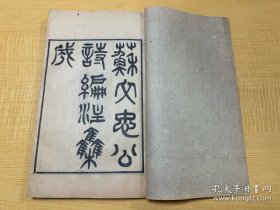 蘇文忠公
詩編注集
成
孔夫子旧书网